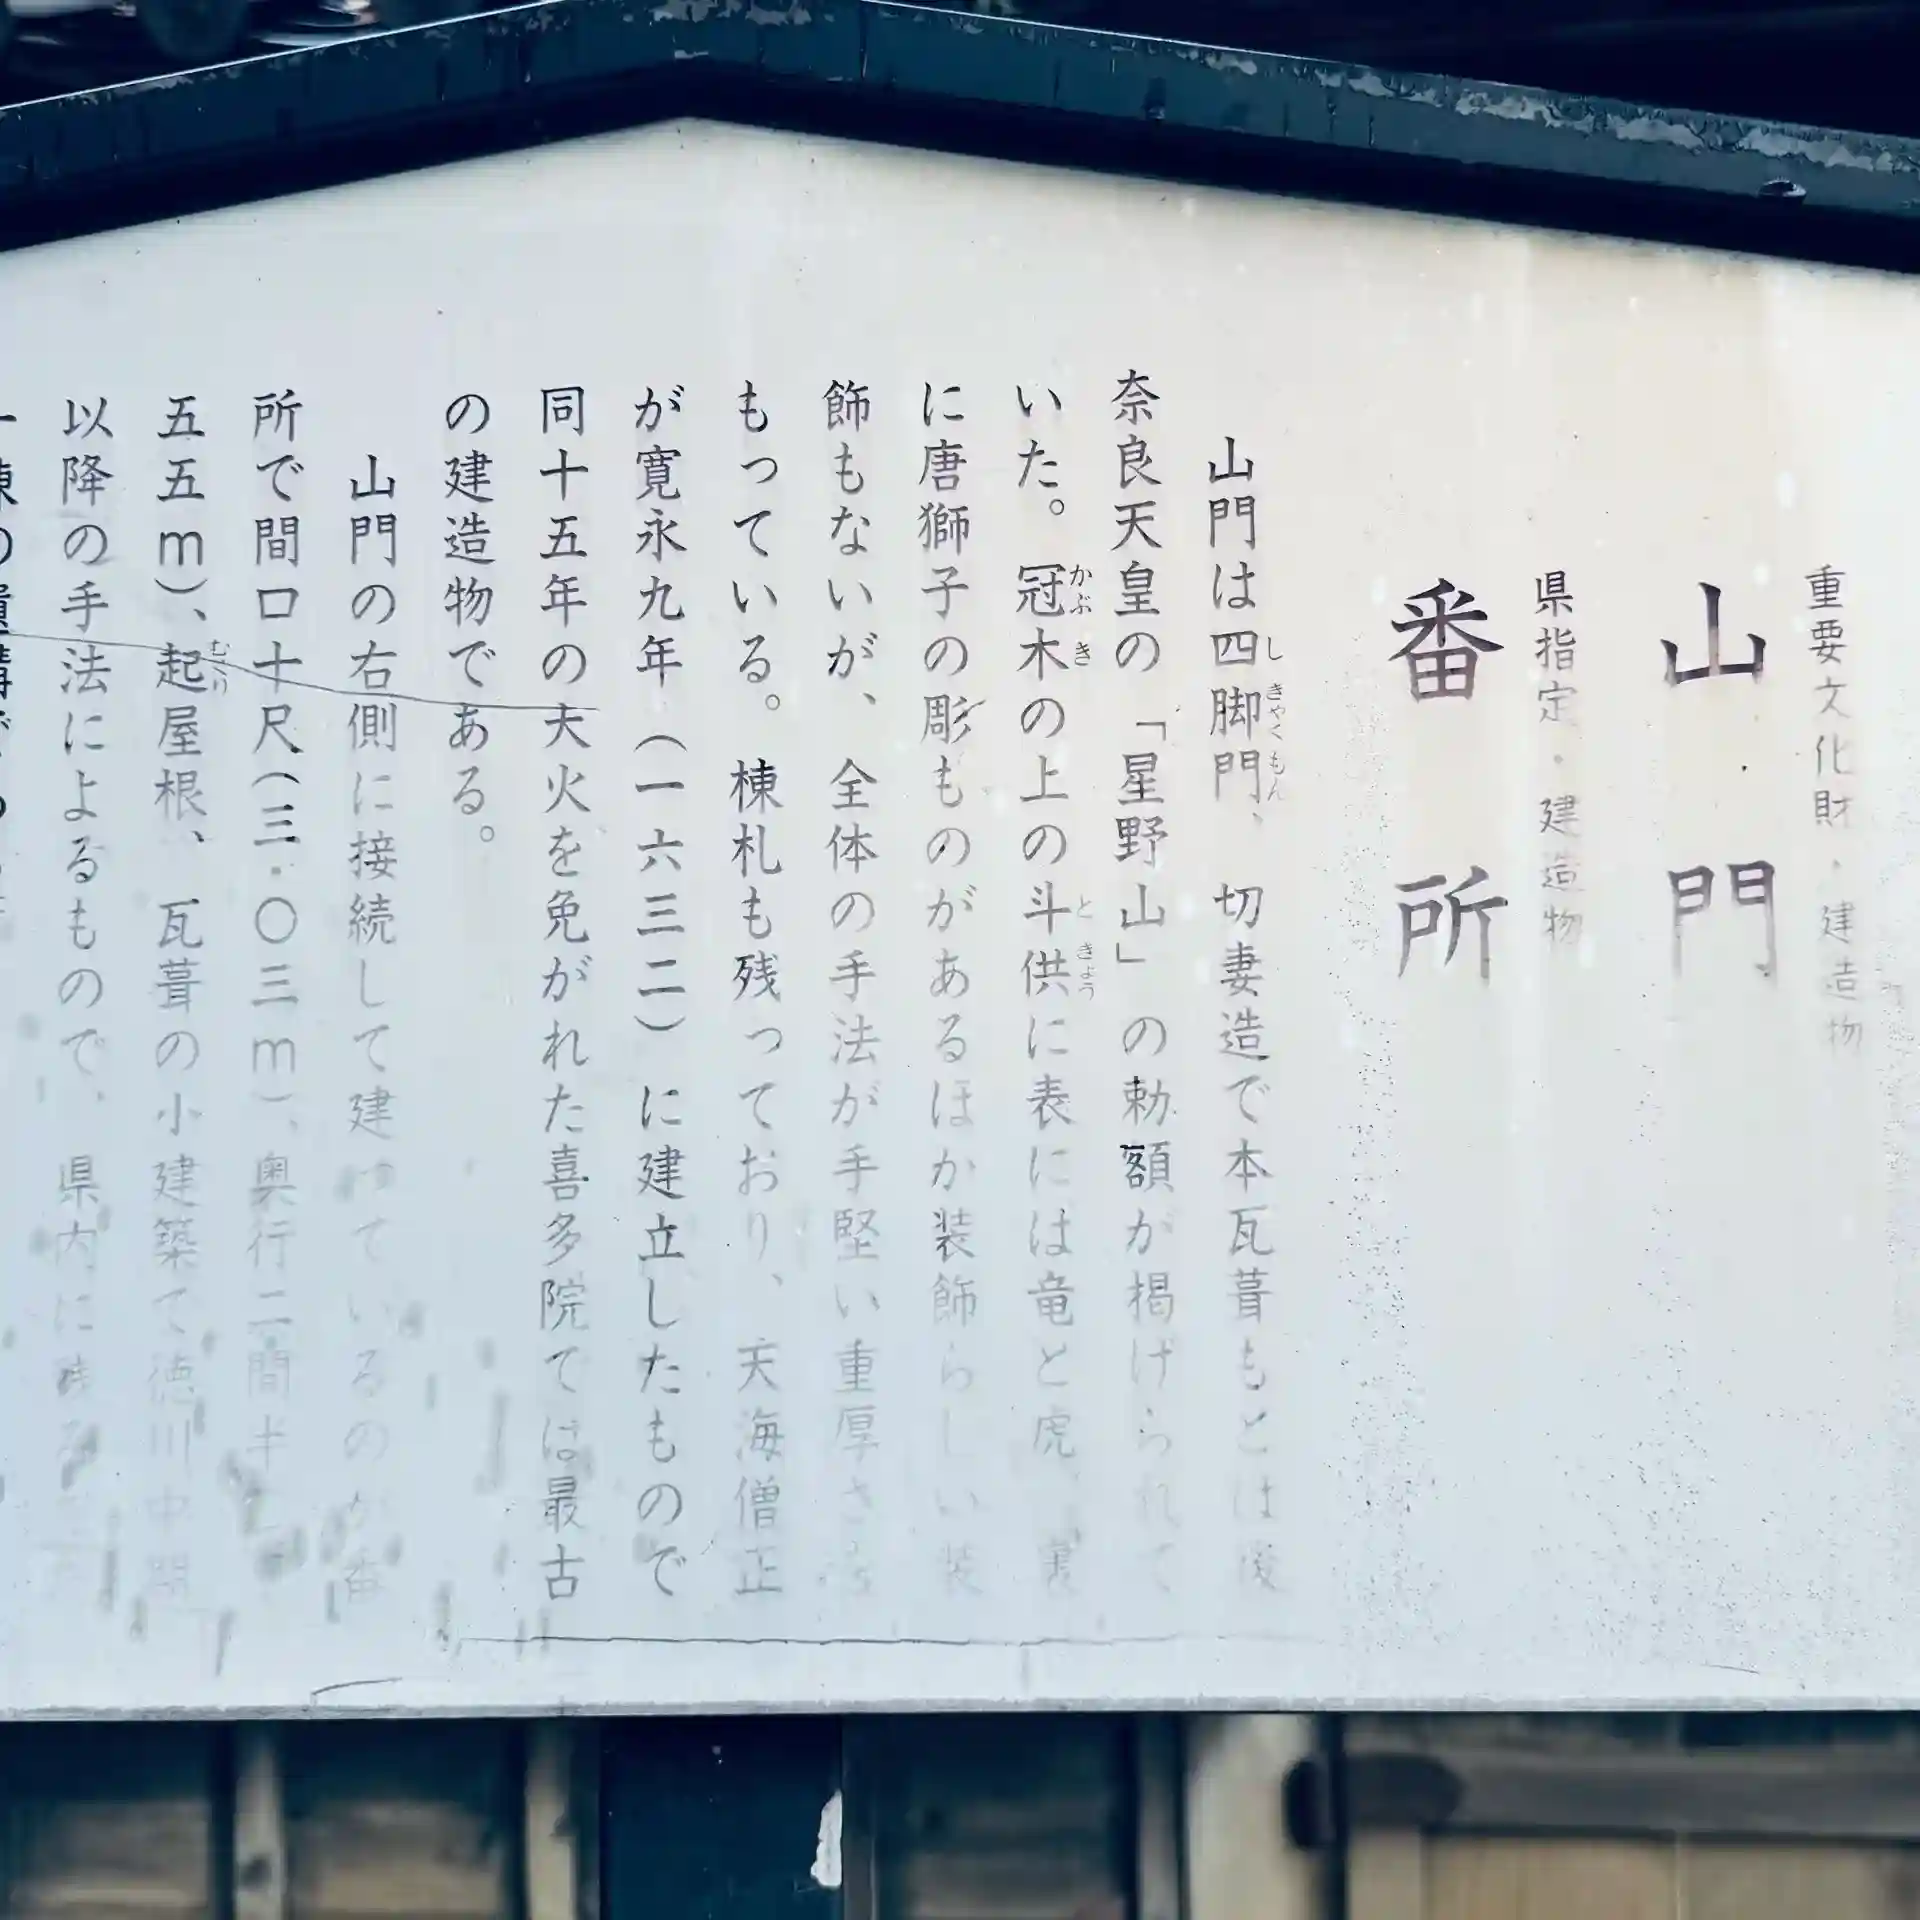 重要文化財・建造物
山門
県指定・建造物
番所
山門は四脚門、切妻造で本瓦葺もとは後
奈良天皇の「星野山」の勅額が掲げられて
いた。冠木の上の斗供に表には竜と虎、裏
に唐獅子の彫ものがあるほか装飾らしい装
飾もないが、全体の手法が手堅い重厚さを
もっている。棟札も残っており、天海僧正
が寛永九年(一六三二)に建立したもので
同十五年の大火を免がれた喜多院では最古
の建造物である。
山門の右側に接続して建っているのが番
所で間口十尺(三・〇三m)、奥行二間半
五五m)、起屋根、瓦葺の小建築で徳川中期
以降の手法によるもので、県内に残る